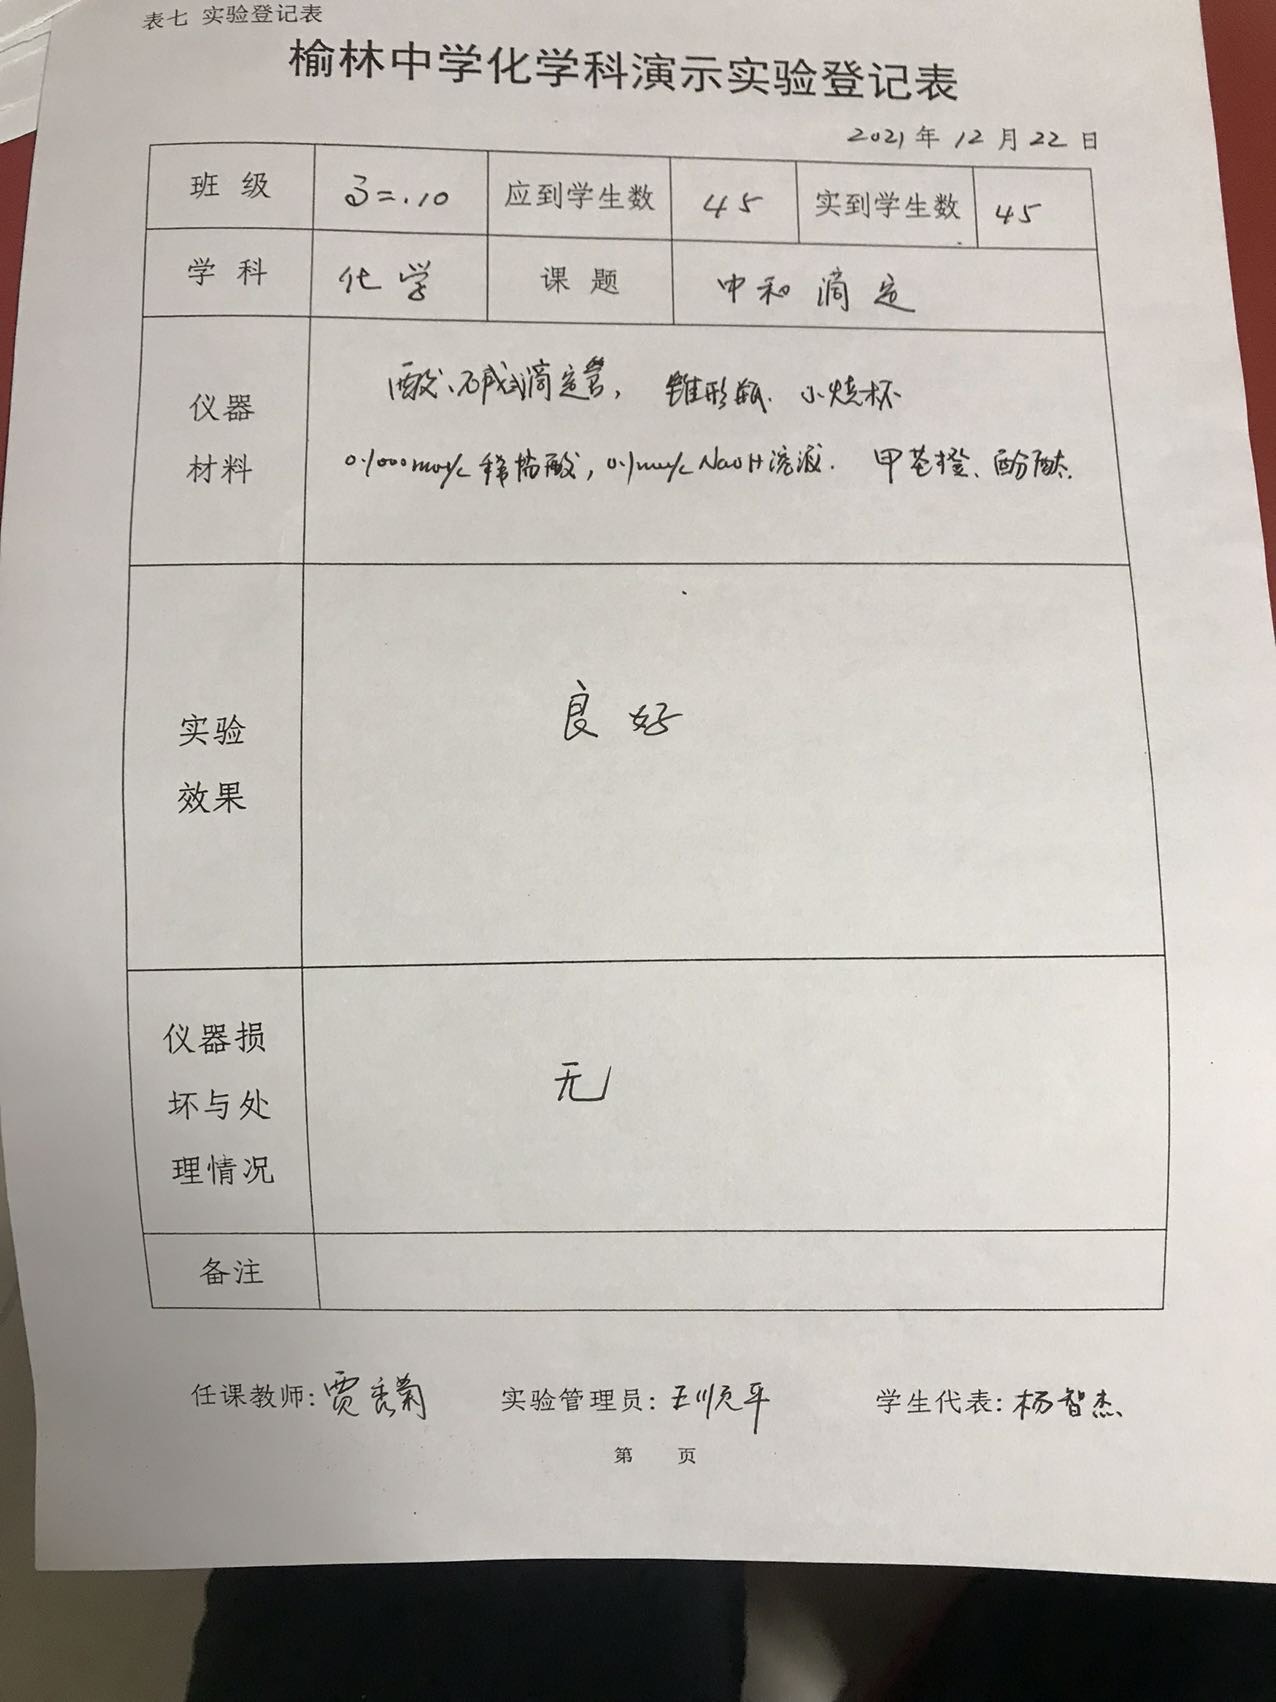 表七 实验登记表
榆林中学化学科演示实验登记表
2021年12月22日
班 级 高二.10 应到学生数 45 实到学生数 45
学 科 化学 课 题 中和滴定
仪器
材料
酸、碱式滴定管, 锥形瓶. 小烧杯
0.1000mol/L 稀盐酸, 0.1mol/L NaOH溶液. 甲基橙、酚酞.
实验
效果
良好
仪器损
坏与处
理情况
无
备注
任课教师: 贾秀菊 实验管理员: 王顺平 学生代表: 杨智杰
第 页